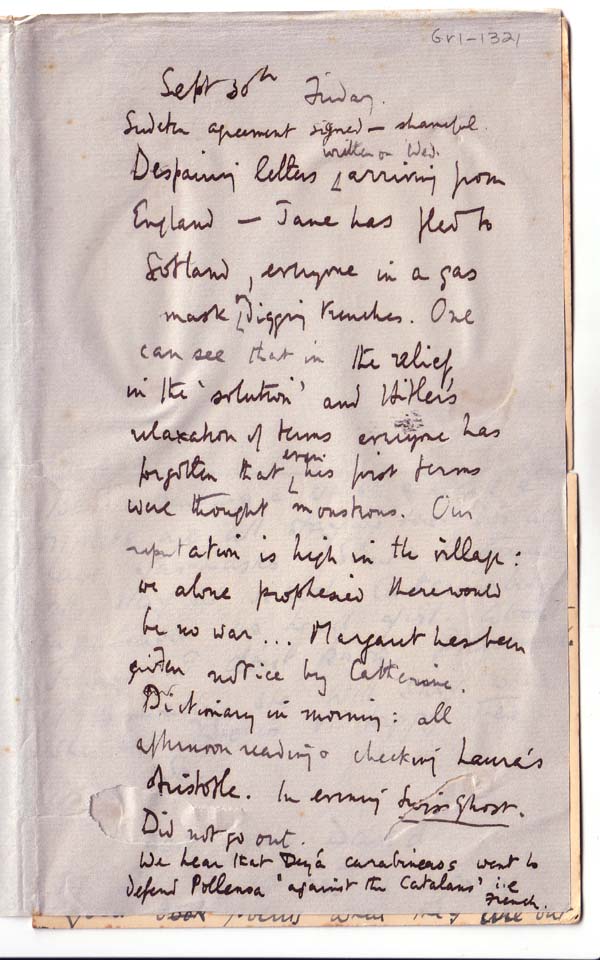 GV1-1321
Sept 30th Friday.
Sudeten agreement signed — shameful.
written on Wed.
Despairing letters arriving from
England — Jane has fled to
Scotland, everyone in a gas
mask or digging trenches. One
can see that in the relief
in the 'solution' and Hitler's
relaxation of terms everyone has
even
forgotten that his first terms
were thought monstrous. Our
reputation is high in the village:
we alone prophesied there would
be no war... Margaret has been
given notice by Catherine.
Dictionary in morning: all
afternoon reading & checking Laura's
Aristotle. In evening Swiss Ghost.
Did not go out.
We hear that Deyá carabineros went to
defend Pollensa "against the Catalans" i.e
French.